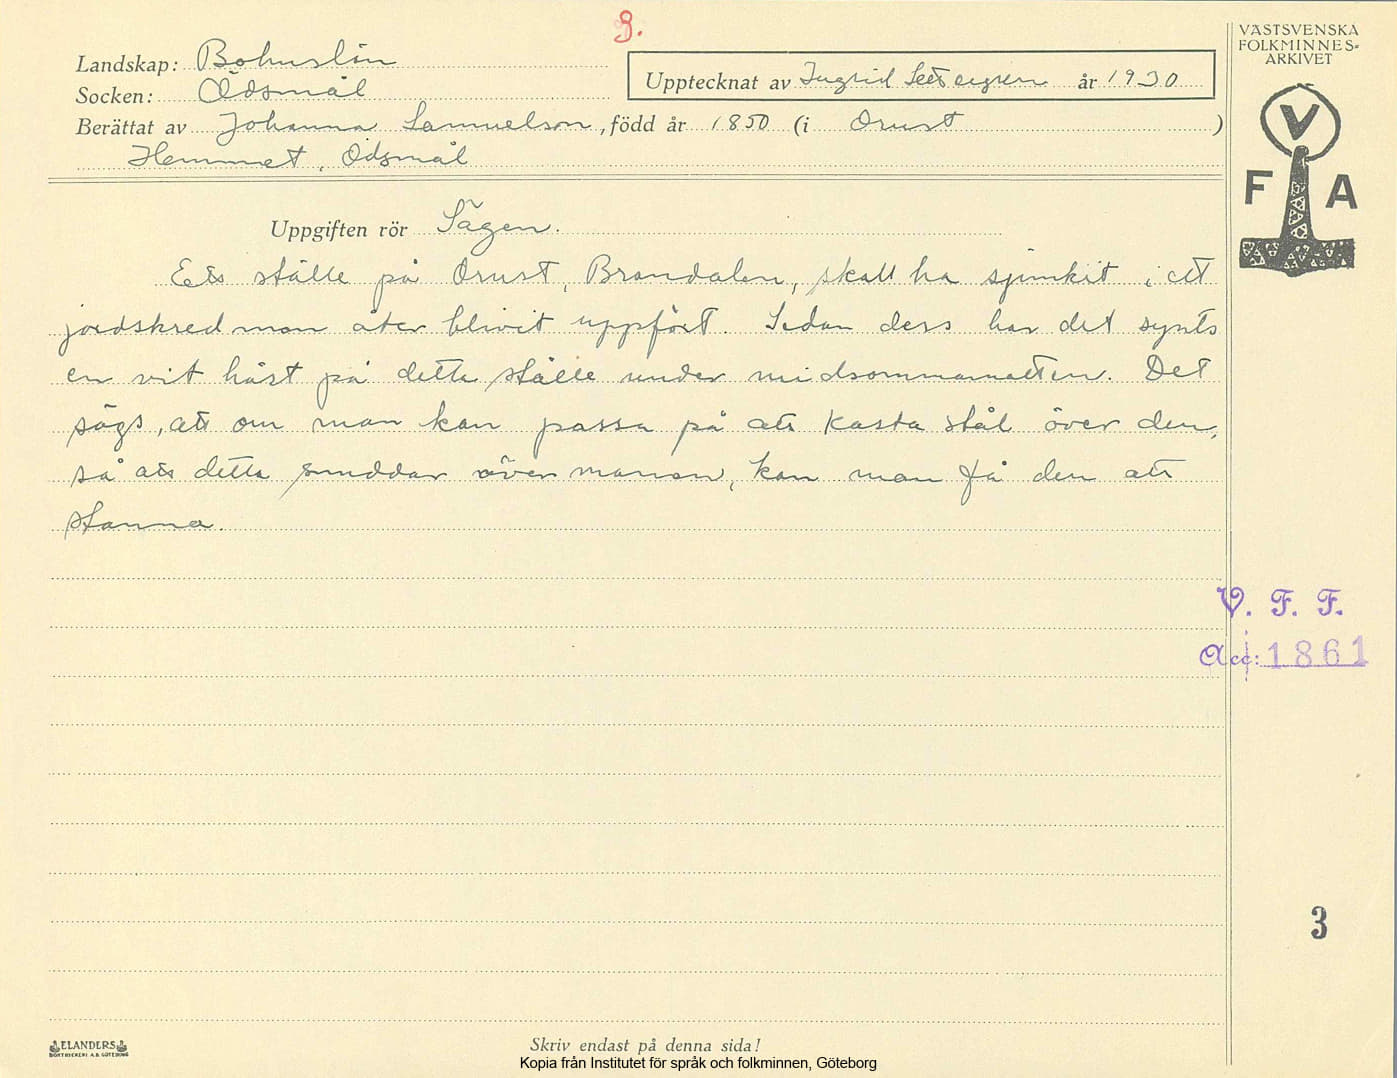 9.
Landskap: Bohuslän
Socken: Ödsmål
Upptecknat av Ingrid år 1930
Berättat av Johanna Samuelson, född år 1850 (i Orust )
Hemmet, Ödsmål
VÄSTSVENSKA
FOLKMINNES-
ARKIVET
V
F A
Uppgiften rör Sägen.
Ett ställe på Orust, Brandalen, skall ha sjunkit i ett
jordskred men åter blivit uppfört. Sedan dess har det synts
en vit häst på detta ställe under midsommarnatten. Det
sägs, att om man kan passa på att kasta stål över den,
så att detta snuddar över manen, kan man få den att
stanna.
V. F. F.
Acc: 1861
3
ELANDERS
BOKTRYCKERI A.B. GÖTEBORG
Skriv endast på denna sida!
Kopia från Institutet för språk och folkminnen, Göteborg